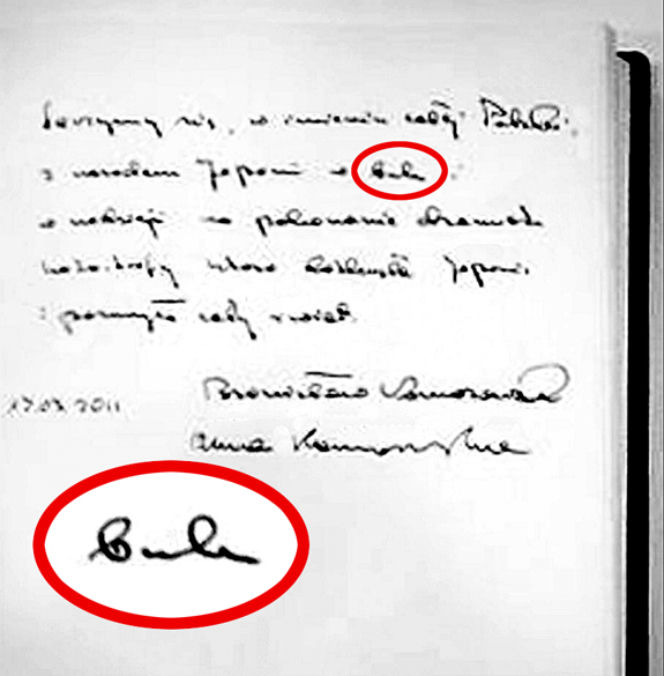 Łączymy się, w imieniu całej Polski,
z narodem Japonii w bulu
w nadzieji na pokonanie dramatu
katastrofy która dotknęła Japonię
i poruszyła cały świat.
Bronisław Komorowski
17.03.2011
Anna Komorowska
bulu